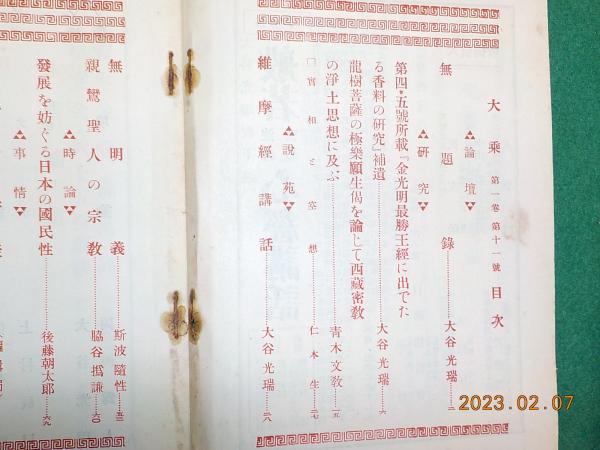 大乘 第一卷 第十一號 目次
論壇
無題錄 大谷光瑞 一
研究
第四・五號所載『金光明最勝王經に出でた
る香料の研究』補遺 大谷光瑞 六
龍樹菩薩の極樂願生偈を論じて西藏密教
の淨土思想に及ぶ 青木文教 一五
□實相と空想 仁本生 二七
說苑
維摩經講話 大谷光瑞 二八
無明義 斯波隨性
親鸞聖人の宗教 脇谷撝謙 六〇
時論
發展を妨ぐる日本の國民性 後藤朝太郎 六九
事情
2023.02.07